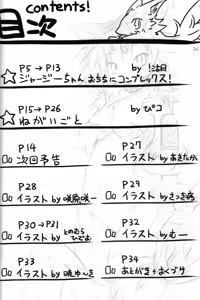 contents!
目次
P5 → P13 by !注目
ジャージーちゃん、おちちにコンプレックス!
P15 → P26 by ぴコ
ねがいごと
P14
次回予告
P27
イラスト by あきたか
P28
イラスト by 咲一
P29
イラスト by さつき病
P30 → P31
イラスト by とのむらひでお
P32
イラスト by むー
P33
イラスト by 暁ゆーき
P34
あとがき+おくづけ